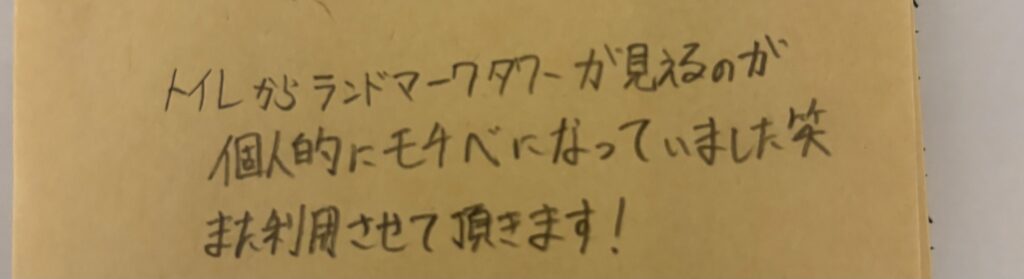 トイレからランドマークタワーが見えるのが
個人的にモチベになっていました笑
また利用させて頂きます!